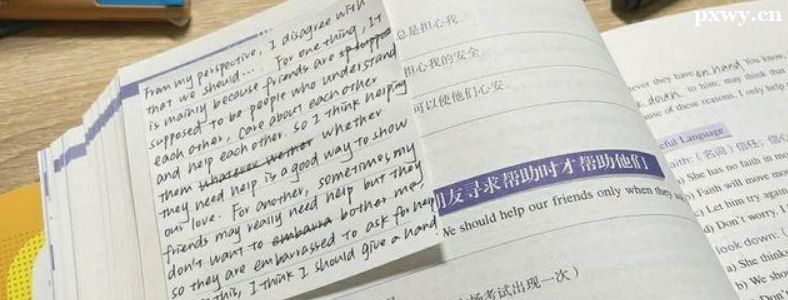 pxwy.cn
From my perspective, I disagree with
that we should... For one thing, It
is mainly because friends are
supposed to be people who understand
each other, care about each other
and help each other. So I think helping
them whatever wether whether
they need help is a good way to show
our love. For another, sometimes, my
friends may really need help but they
don't want to embarra bother me,
so they are embarrassed to ask for help
this, I think I should give a hand
总是担心我
担心我的安全
可以使他们心安
朋友寻求帮助时才帮助他们
We should help our friends only when they
场考试出现一次）
ever they have on hand. You know,
down to him; may think that
use of these reasons, I only help
eful Language
aith: (名词) 信任; 信心
She has no faith in
) Faith will move
) Let him try again
d) Don't worry. I
look down:
a) She thinks
b) We shou
Don't